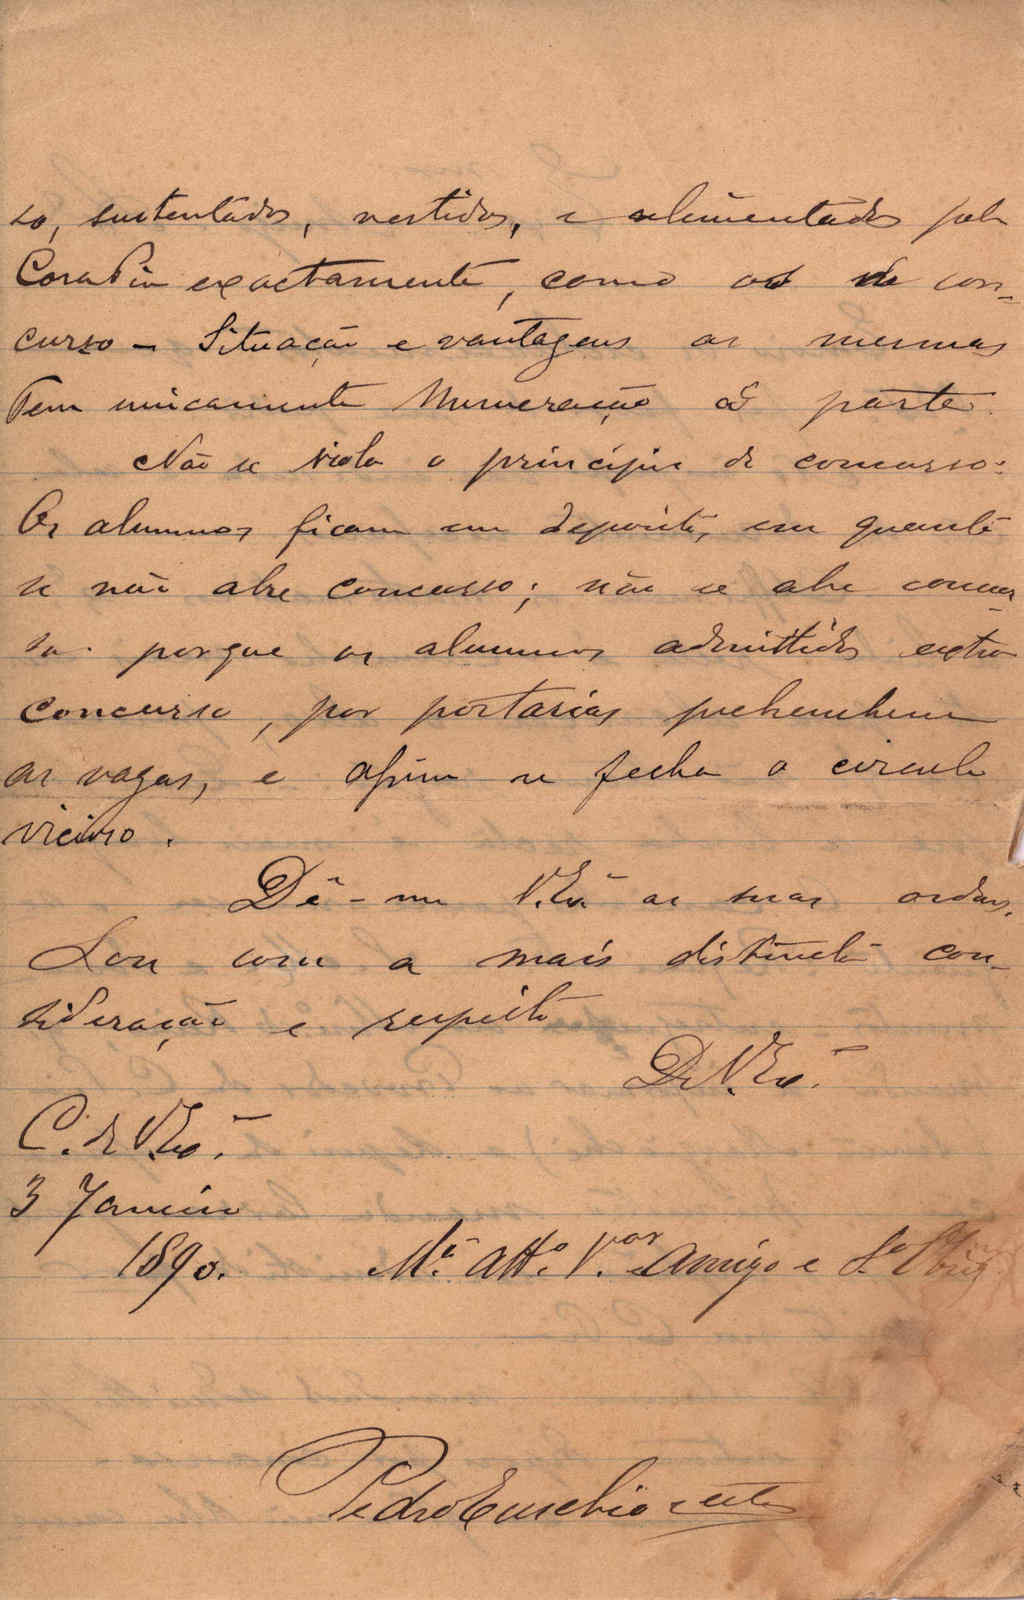 so, sustentados, vestidos, e alimentados pela
Casa Pia exactamente, como os de con-
curso - Situação e vantagens as mesmas
Tem unicamente Numeração á parte.
Não se viola o principio de concurso:
Os alumnos ficam em deposito, em quanto
se não abre concurso; não se abre concur-
so porque os alumnos admittidos extra
concurso, por portarias prehenchem
as vagas, e assim se fecha o circulo
vicioso.
Dê-me V. Exª as suas ordens.
Sou com a mais distincta con-
sideração e respeito
De V. Exª
C. de V. Exª
3 Janeiro
1890.
Mº. Attº. Vºr amigo e Sº Obrig
Pedro Eusebio Leite